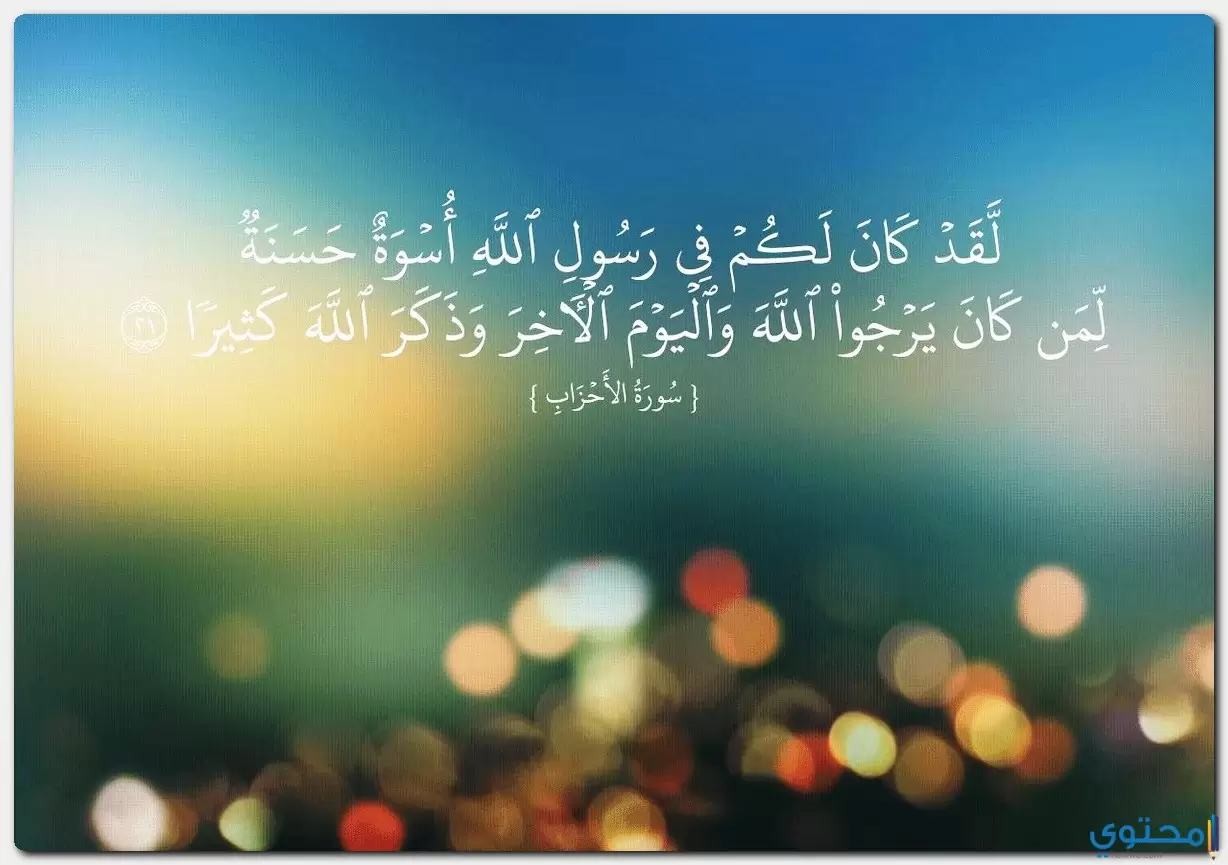 لَّقَدۡ كَانَ لَكُمۡ فِي رَسُولِ ٱللَّهِ أُسۡوَةٌ حَسَنَةٞ
لِّمَن كَانَ يَرۡجُواْ ٱللَّهَ وَٱلۡيَوۡمَ ٱلۡأٓخِرَ وَذَكَرَ ٱللَّهَ كَثِيرٗا ٢١
{ سُورَةُ الأَحْزَابِ }
محتوي